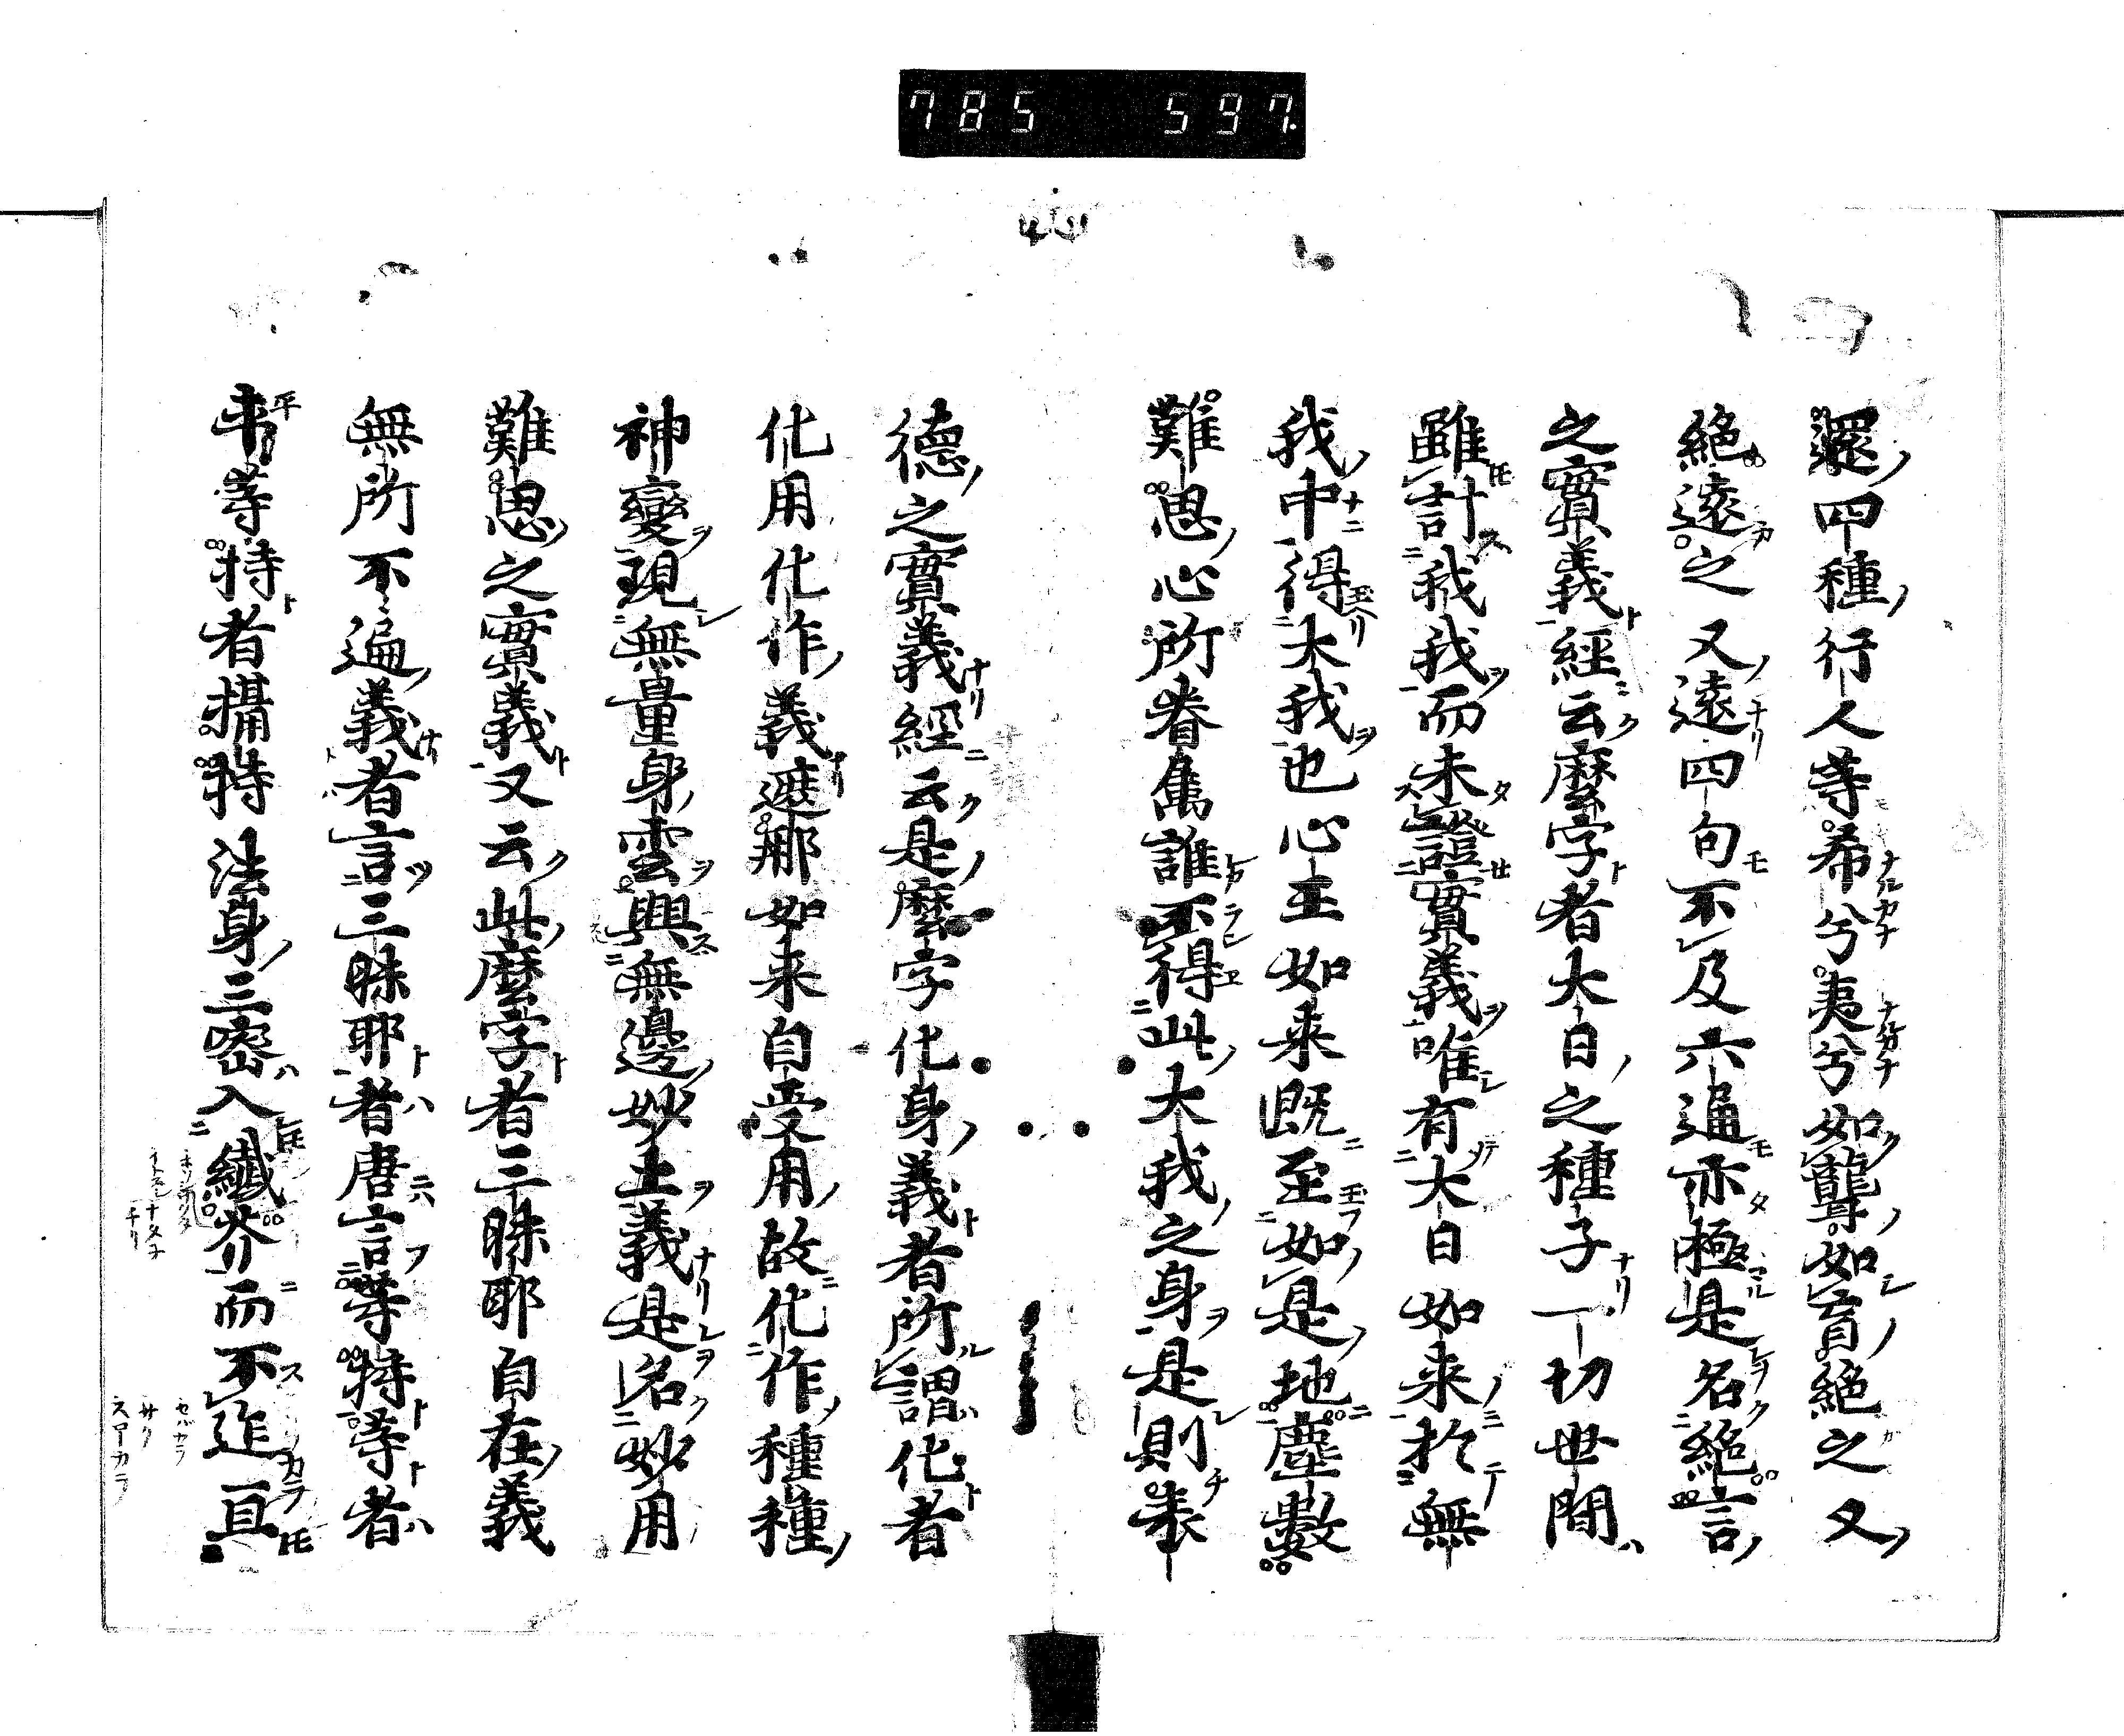 785 597.
還四種行人等希兮夷兮如聾如盲絶之又
絶遠之又遠四句不及六通亦極是名絶言
之實義經云麼字者大日之種子一切世間
雖計我我而未證實義唯有大日如来於無
我中得大我也心王如来既至如是地塵數
難思心所眷属誰不得此大我之身是則表
德之實義經云是麼字化身義者所謂化者
化用化作義遮那如来自受用故化作種種
神變現無量身雲興無邊妙土義是名妙用
難思之實義又云此麼字者三昧耶自在義
無所不遍義者言三昧耶者唐言等持等者
平等持者攝持法身三密入纖芥而不迮亘